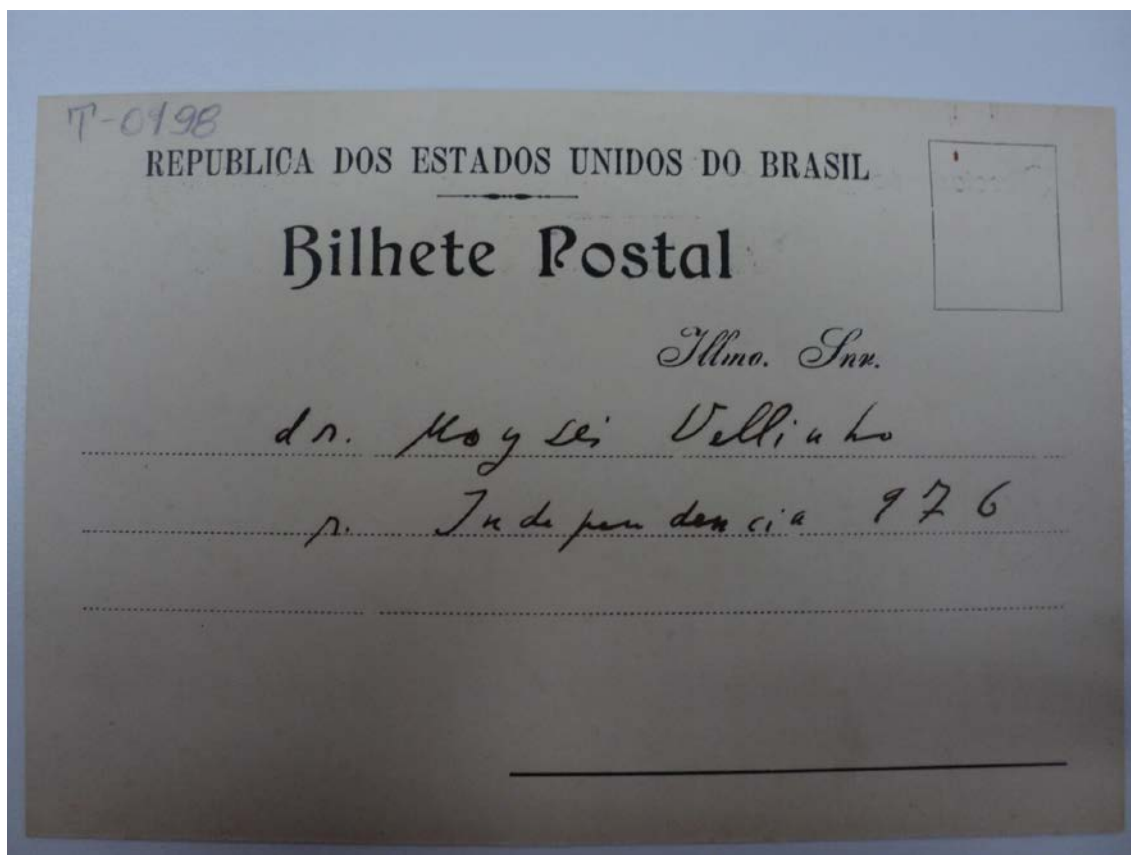 T-0198
REPUBLICA DOS ESTADOS UNIDOS DO BRASIL
Bilhete Postal
Illmo. Snr.
dr. Moysés Vellinho
r. Independencia 976